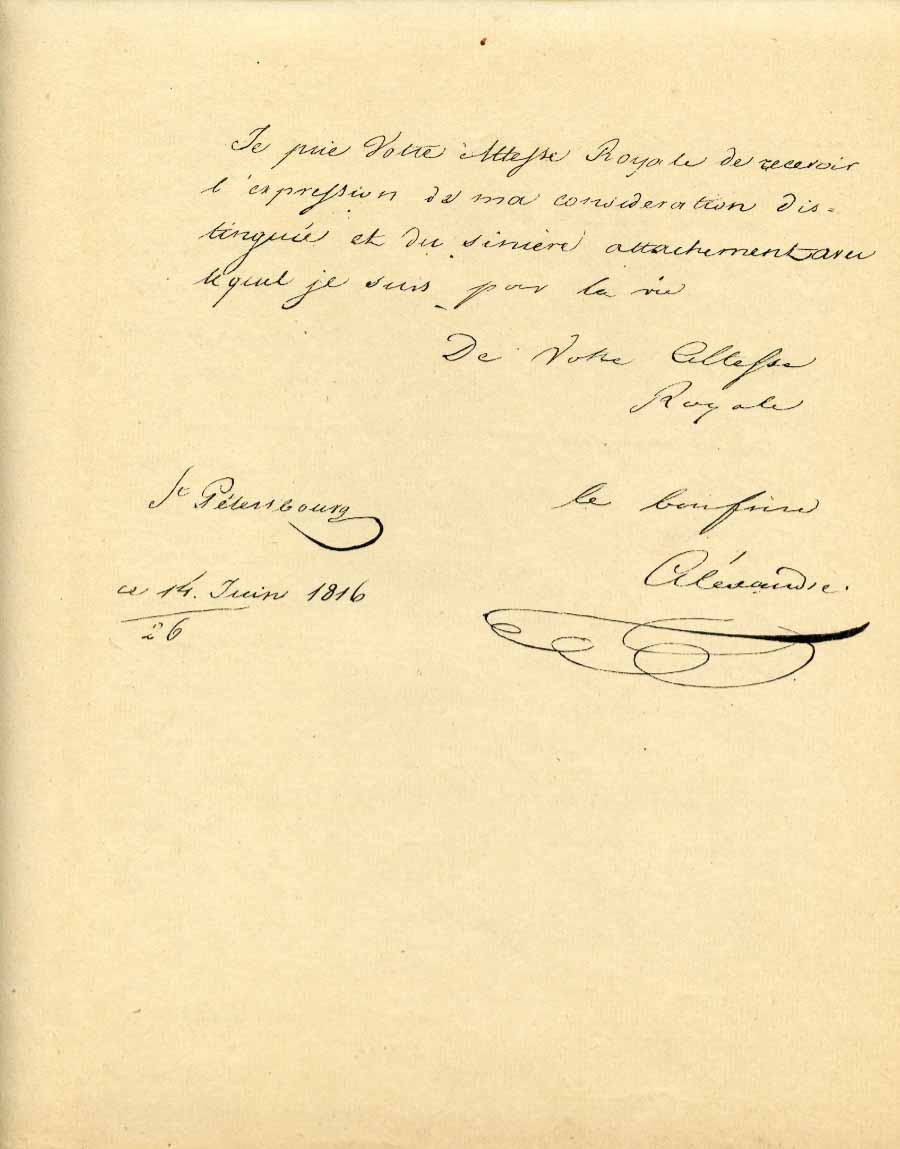 Je prie Votre Altesse Royale de recevoir
l'expression de ma consideration dis-
tinguée et du sincère attachement avec
lequel je suis pour la vie
De Votre Altesse
Royale
le bon frère
Aléxandre.
St Pétersbourg
ce 14. Juin 1816
26